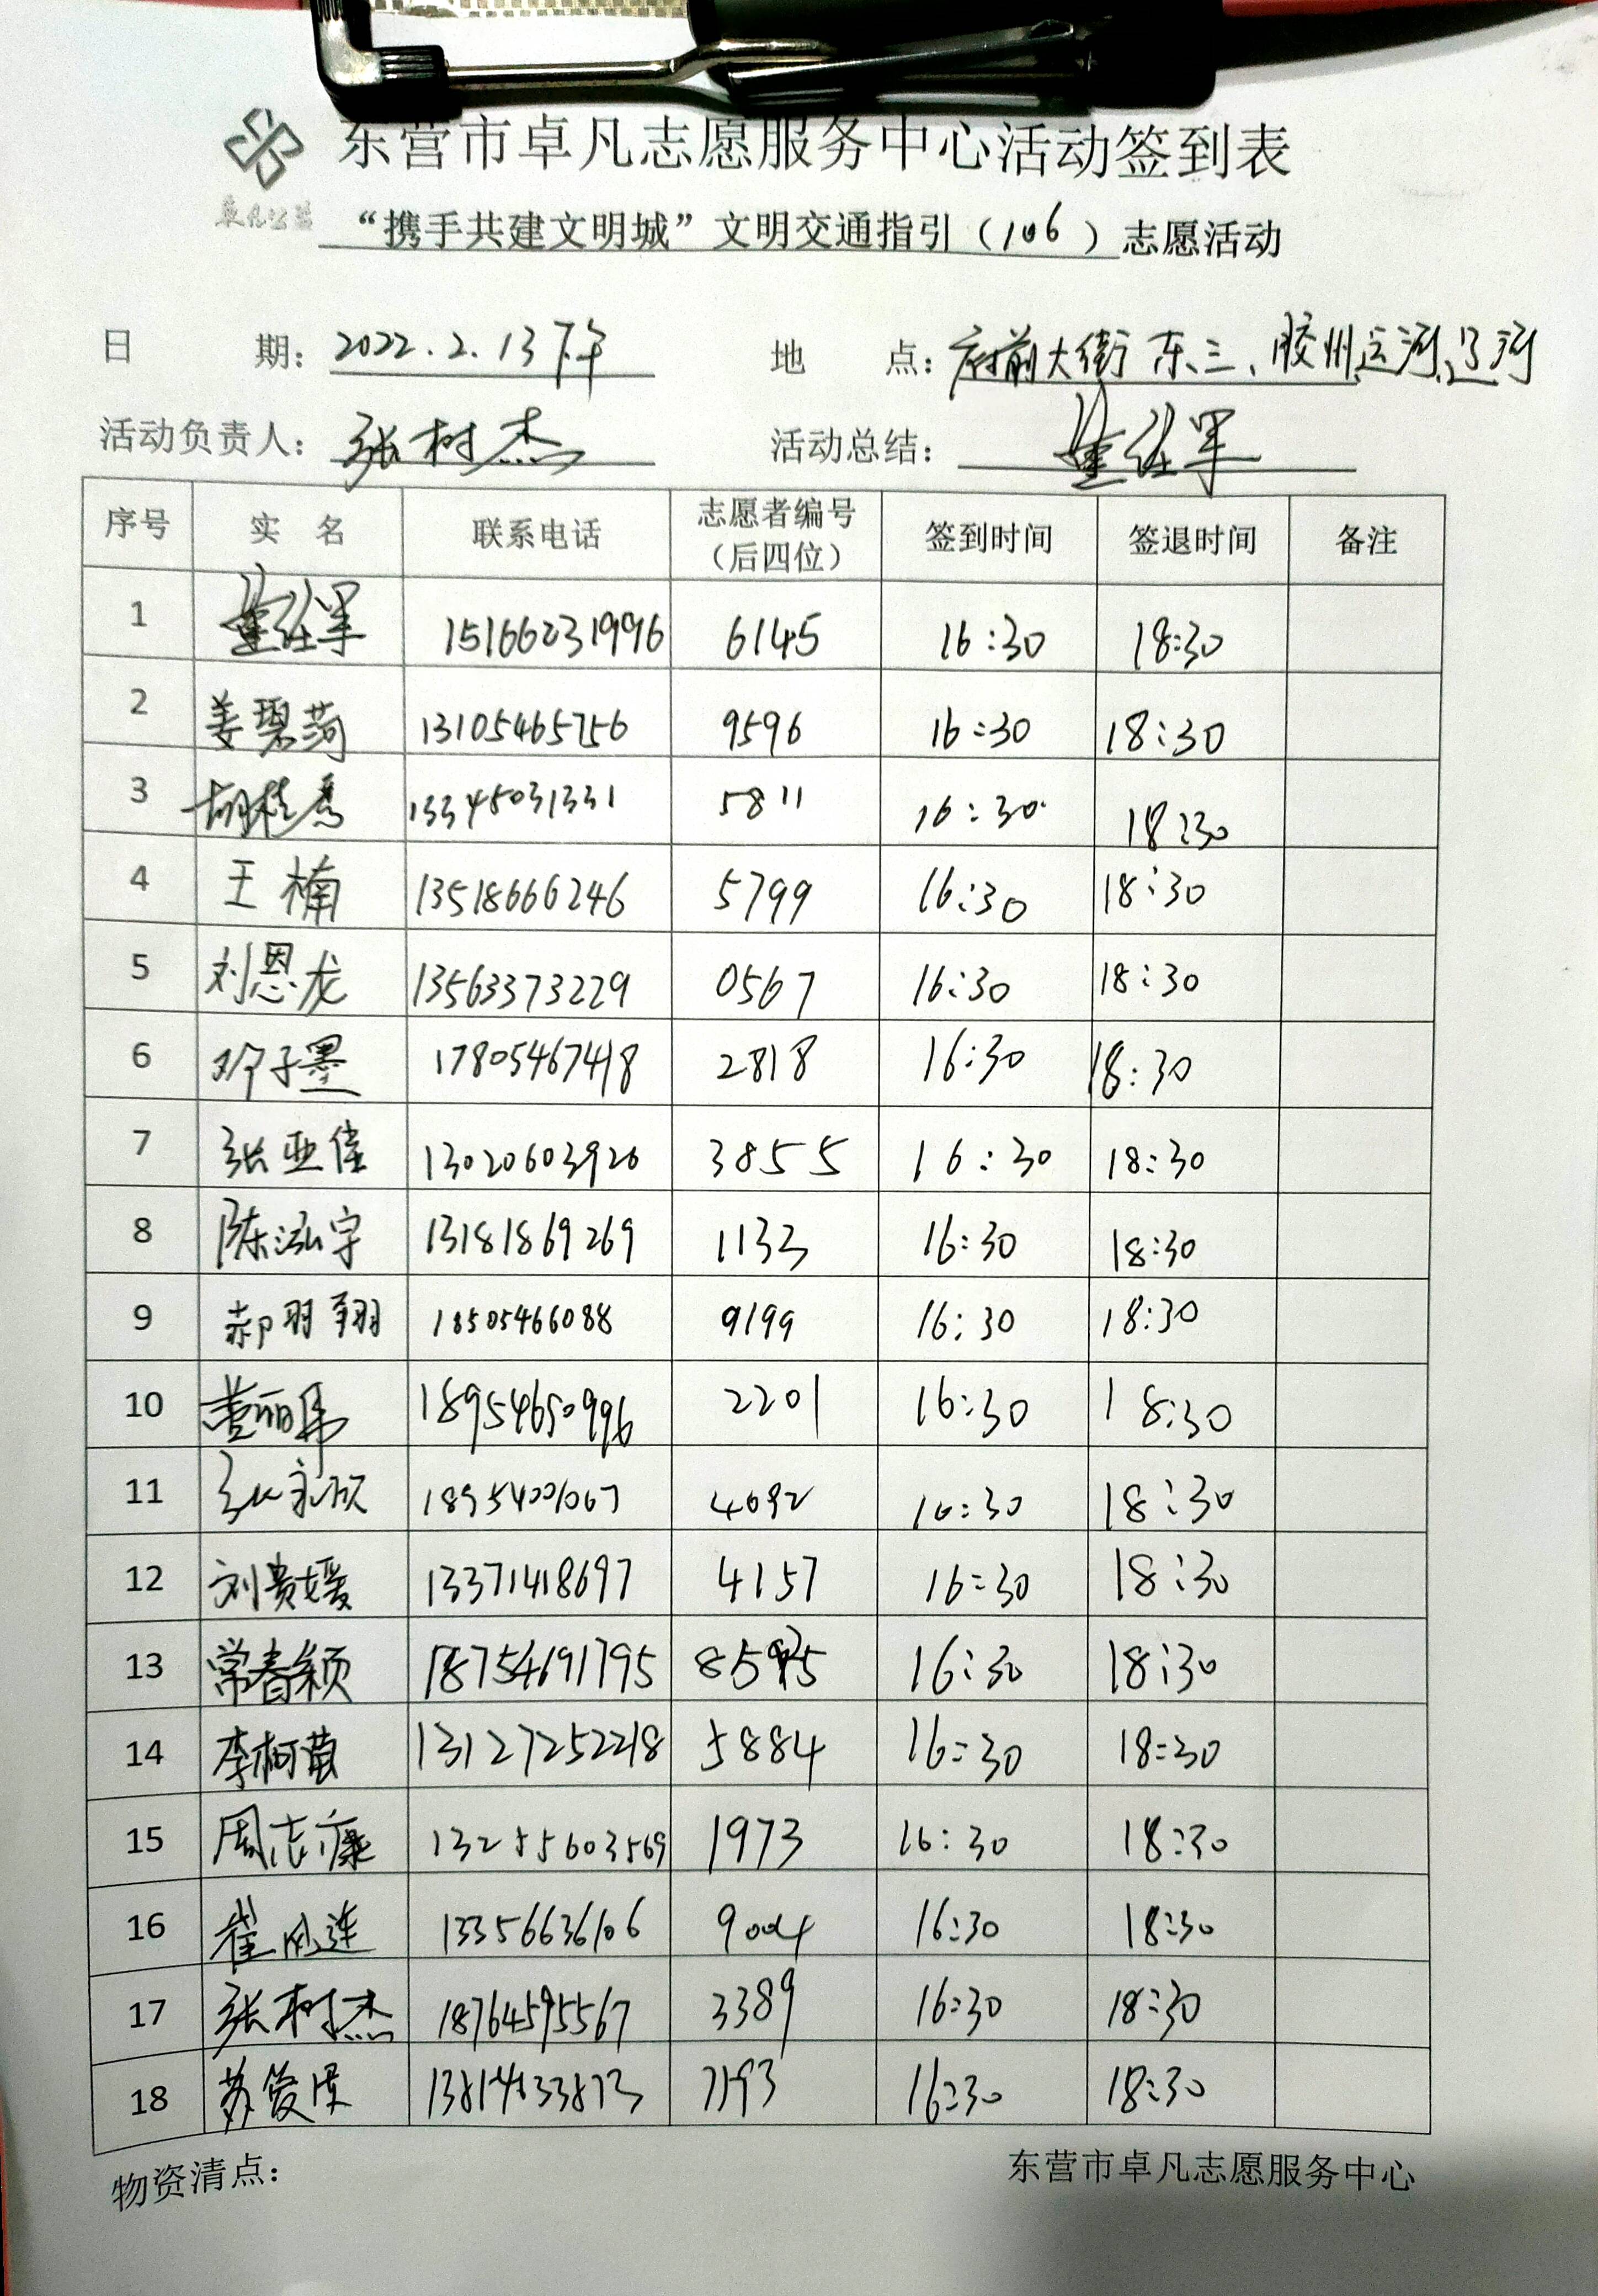 东营市卓凡志愿服务中心活动签到表
卓凡公益
“携手共建文明城”文明交通指引（106）志愿活动
日 期：2022.2.13下午 地 点：府前大街东三、胶州、运河、辽河
活动负责人：张树杰 活动总结：
序号 实 名 联系电话 志愿者编号（后四位） 签到时间 签退时间 备注
1 15166231996 6145 16:30 18:30
2 姜碧荷 13105465756 9596 16:30 18:30
3 胡桂香 13345031331 5811 16:30 18:30
4 王楠 13518666246 5799 16:30 18:30
5 刘恩龙 13563373229 0567 16:30 18:30
6 邓子墨 17805467418 2818 16:30 18:30
7 张亚倩 13020603926 3855 16:30 18:30
8 陈泓宇 13181869269 1133 16:30 18:30
9 郝羽翔 18505466088 9199 16:30 18:30
10 18954650996 2201 16:30 18:30
11 18954001067 4692 16:30 18:30
12 刘贵媛 13371418697 4157 16:30 18:30
13 常春颖 18754691795 16:30 18:30
14 李柯萱 13127252218 5884 16:30 18:30
15 周志康 13255603569 1973 16:30 18:30
16 崔凤莲 13356636106 9004 16:30 18:30
17 张树杰 18764595567 3389 16:30 18:30
18 7193 16:30 18:30
物资清点： 东营市卓凡志愿服务中心